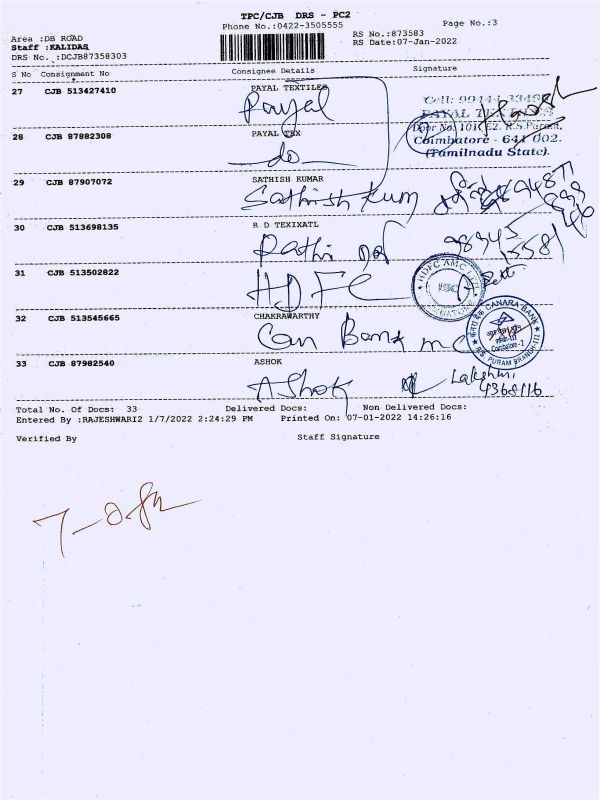 TPC/CJB DRS - PC2
Phone No.:0422-3505555
Page No.:3
Area :DB ROAD
RS No.:873583
Staff :KALIDAS
RS Date:07-Jan-2022
DRS No. :DCJB87358303
S No Consignment No Consignee Details Signature
27 CJB 513427410 PAYAL TEXTILES
Payal
Cell: 99444 33495
PAYAL TEX
Door No: 101( E2, R.S.Puram,
Coimbatore - 641 002.
(Tamilnadu State).
28 CJB 87882308 PAYAL TEX
do
29 CJB 87907072 SATHISH KUMAR
Sathish Kum
30 CJB 513698135 R D TEXIXATL
31 CJB 513502822
HDFC
HDFC AMC LTD
32 CJB 513545665 CHAKRAWARTHY
Can Bank
CANARA BANK
Coimbatore-2
R.S. PURAM BRANCH-III
33 CJB 87982540 ASHOK
Ashok
Lakshmi
4368116
Total No. Of Docs: 33 Delivered Docs: Non Delivered Docs:
Entered By :RAJESHWARI2 1/7/2022 2:24:29 PM Printed On: 07-01-2022 14:26:16
Verified By Staff Signature